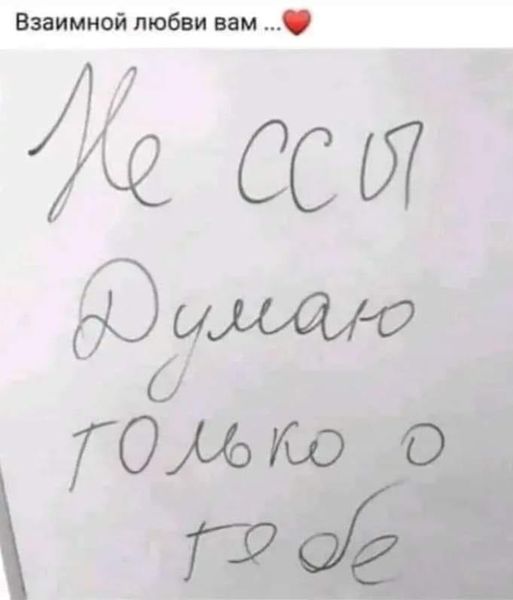 Взаимной любви вам ...❤️
Не ссы
Думаю
только о
тебе